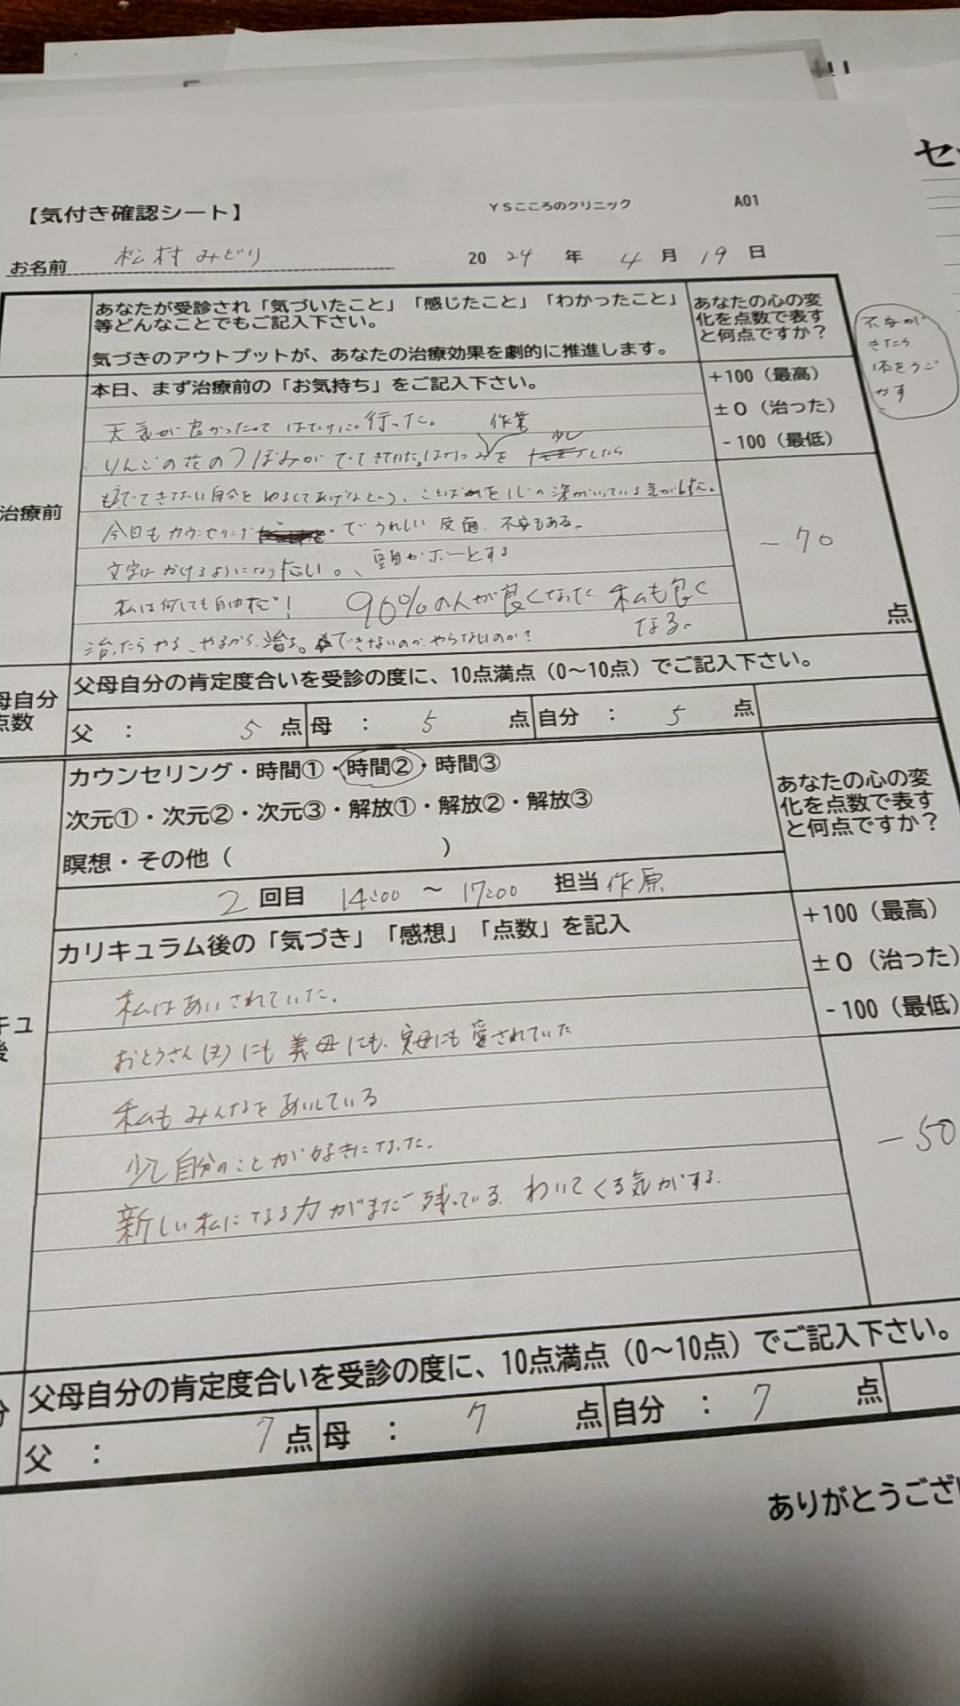 セ
【気付き確認シート】 YSこころのクリニック A01
お名前 松村みどり 2024年4月19日
あなたが受診され「気づいたこと」「感じたこと」「わかったこと」
等どんなことでもご記入下さい。
気づきのアウトプットが、あなたの治療効果を劇的に推進します。
あなたの心の変
化を点数で表す
と何点ですか？
不安が
きたら
体をうご
かす
本日、まず治療前の「お気持ち」をご記入下さい。
+100（最高）
±0（治った）
-100（最低）
治療前
天気が良かったので はたけに行った。 作業
りんごの花のつぼみが でてきてた。 を 少し したら
今日もカウンセリング でうれしい反面、不安もある。
文字はかけるようになりたい。、頭がボーとする
私は何しても自由だ！ 90%の人が良くなった 私も良く
なる。
治ったらやる、やるから治る。できないのか、やらないのか？
-70
点
母自分
点数
父母自分の肯定度合いを受診の度に、10点満点（0〜10点）でご記入下さい。
父 ： 5 点 母 ： 5 点 自分 ： 5 点
カウンセリング・時間①・時間②・時間③
次元①・次元②・次元③・解放①・解放②・解放③
瞑想・その他（ ）
あなたの心の変
化を点数で表す
と何点ですか？
2 回目 14:00 〜 17:00 担当 作原
カリキュラム後の「気づき」「感想」「点数」を記入
+100（最高）
±0（治った）
-100（最低）
キュ
後
私はあいされていた。
おとうさん(夫)にも義母にも、実母にも愛されていた
私もみんなをあいしている
少し自分のことが好きになった。
新しい私になる力がまだ残っている、わいてくる気がする。
-50
分
父母自分の肯定度合いを受診の度に、10点満点（0〜10点）でご記入下さい。
父 ： 7 点 母 ： 7 点 自分 ： 7 点
ありがとうござい